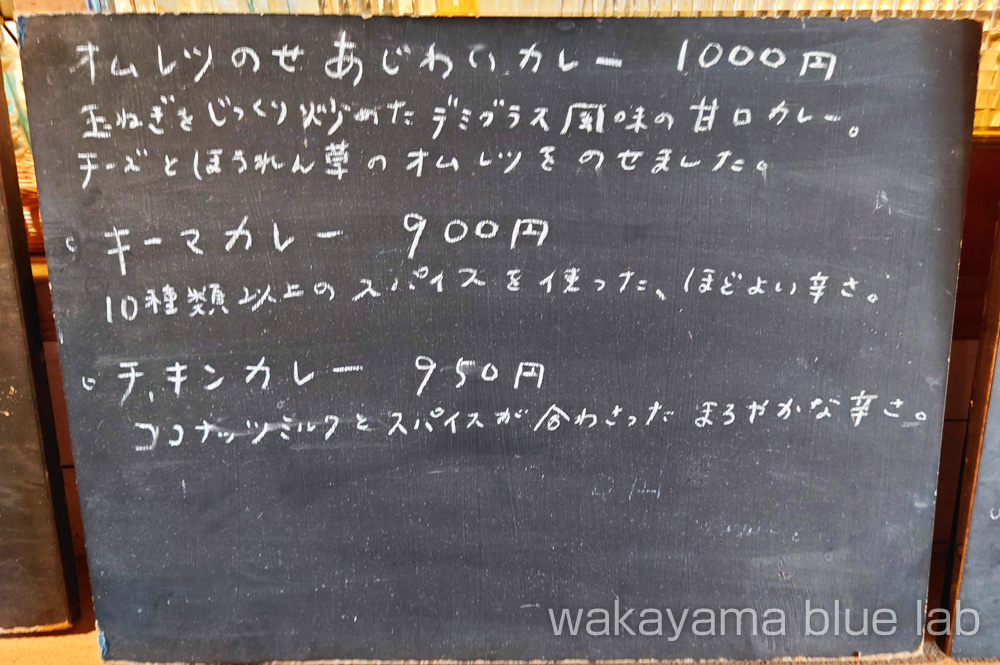 オムレツのせ あじわい カレー 1000円
玉ねぎをじっくり炒めたデミグラス風味の甘口カレー。
チーズとほうれん草のオムレツをのせました。
○ キーマカレー 900円
10種類以上のスパイスを使った、ほどよい辛さ。
○ チキンカレー 950円
ココナッツミルクとスパイスが合わさったまろやかな辛さ。
wakayama blue lab